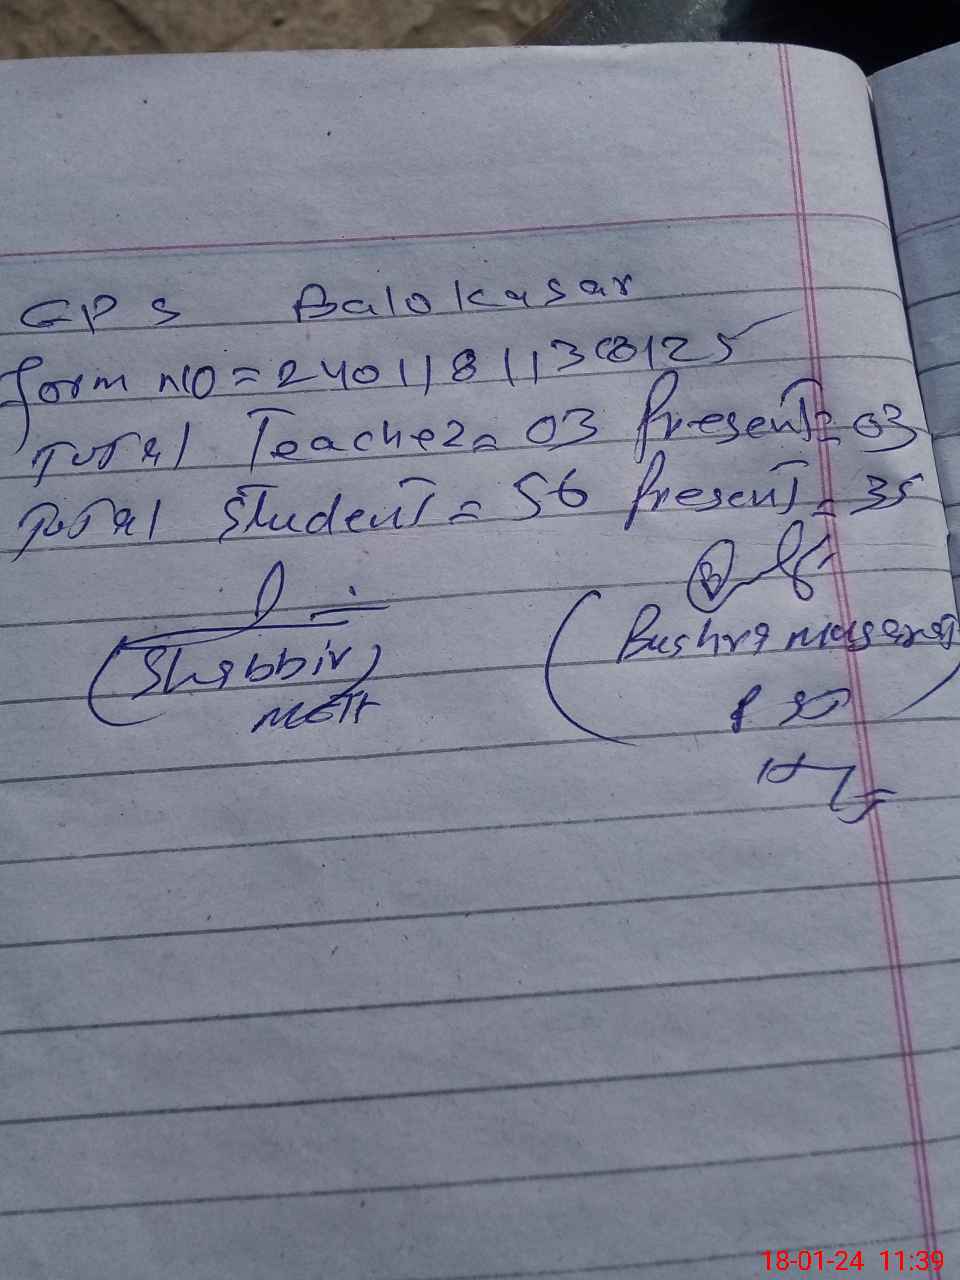 GPS Balokasar
form NO = 2401181138125
Total Teacher = 03 Present = 03
Total Student = 56 Present = 35
(Shabbir)
(Bushra
18-01-24 11:39